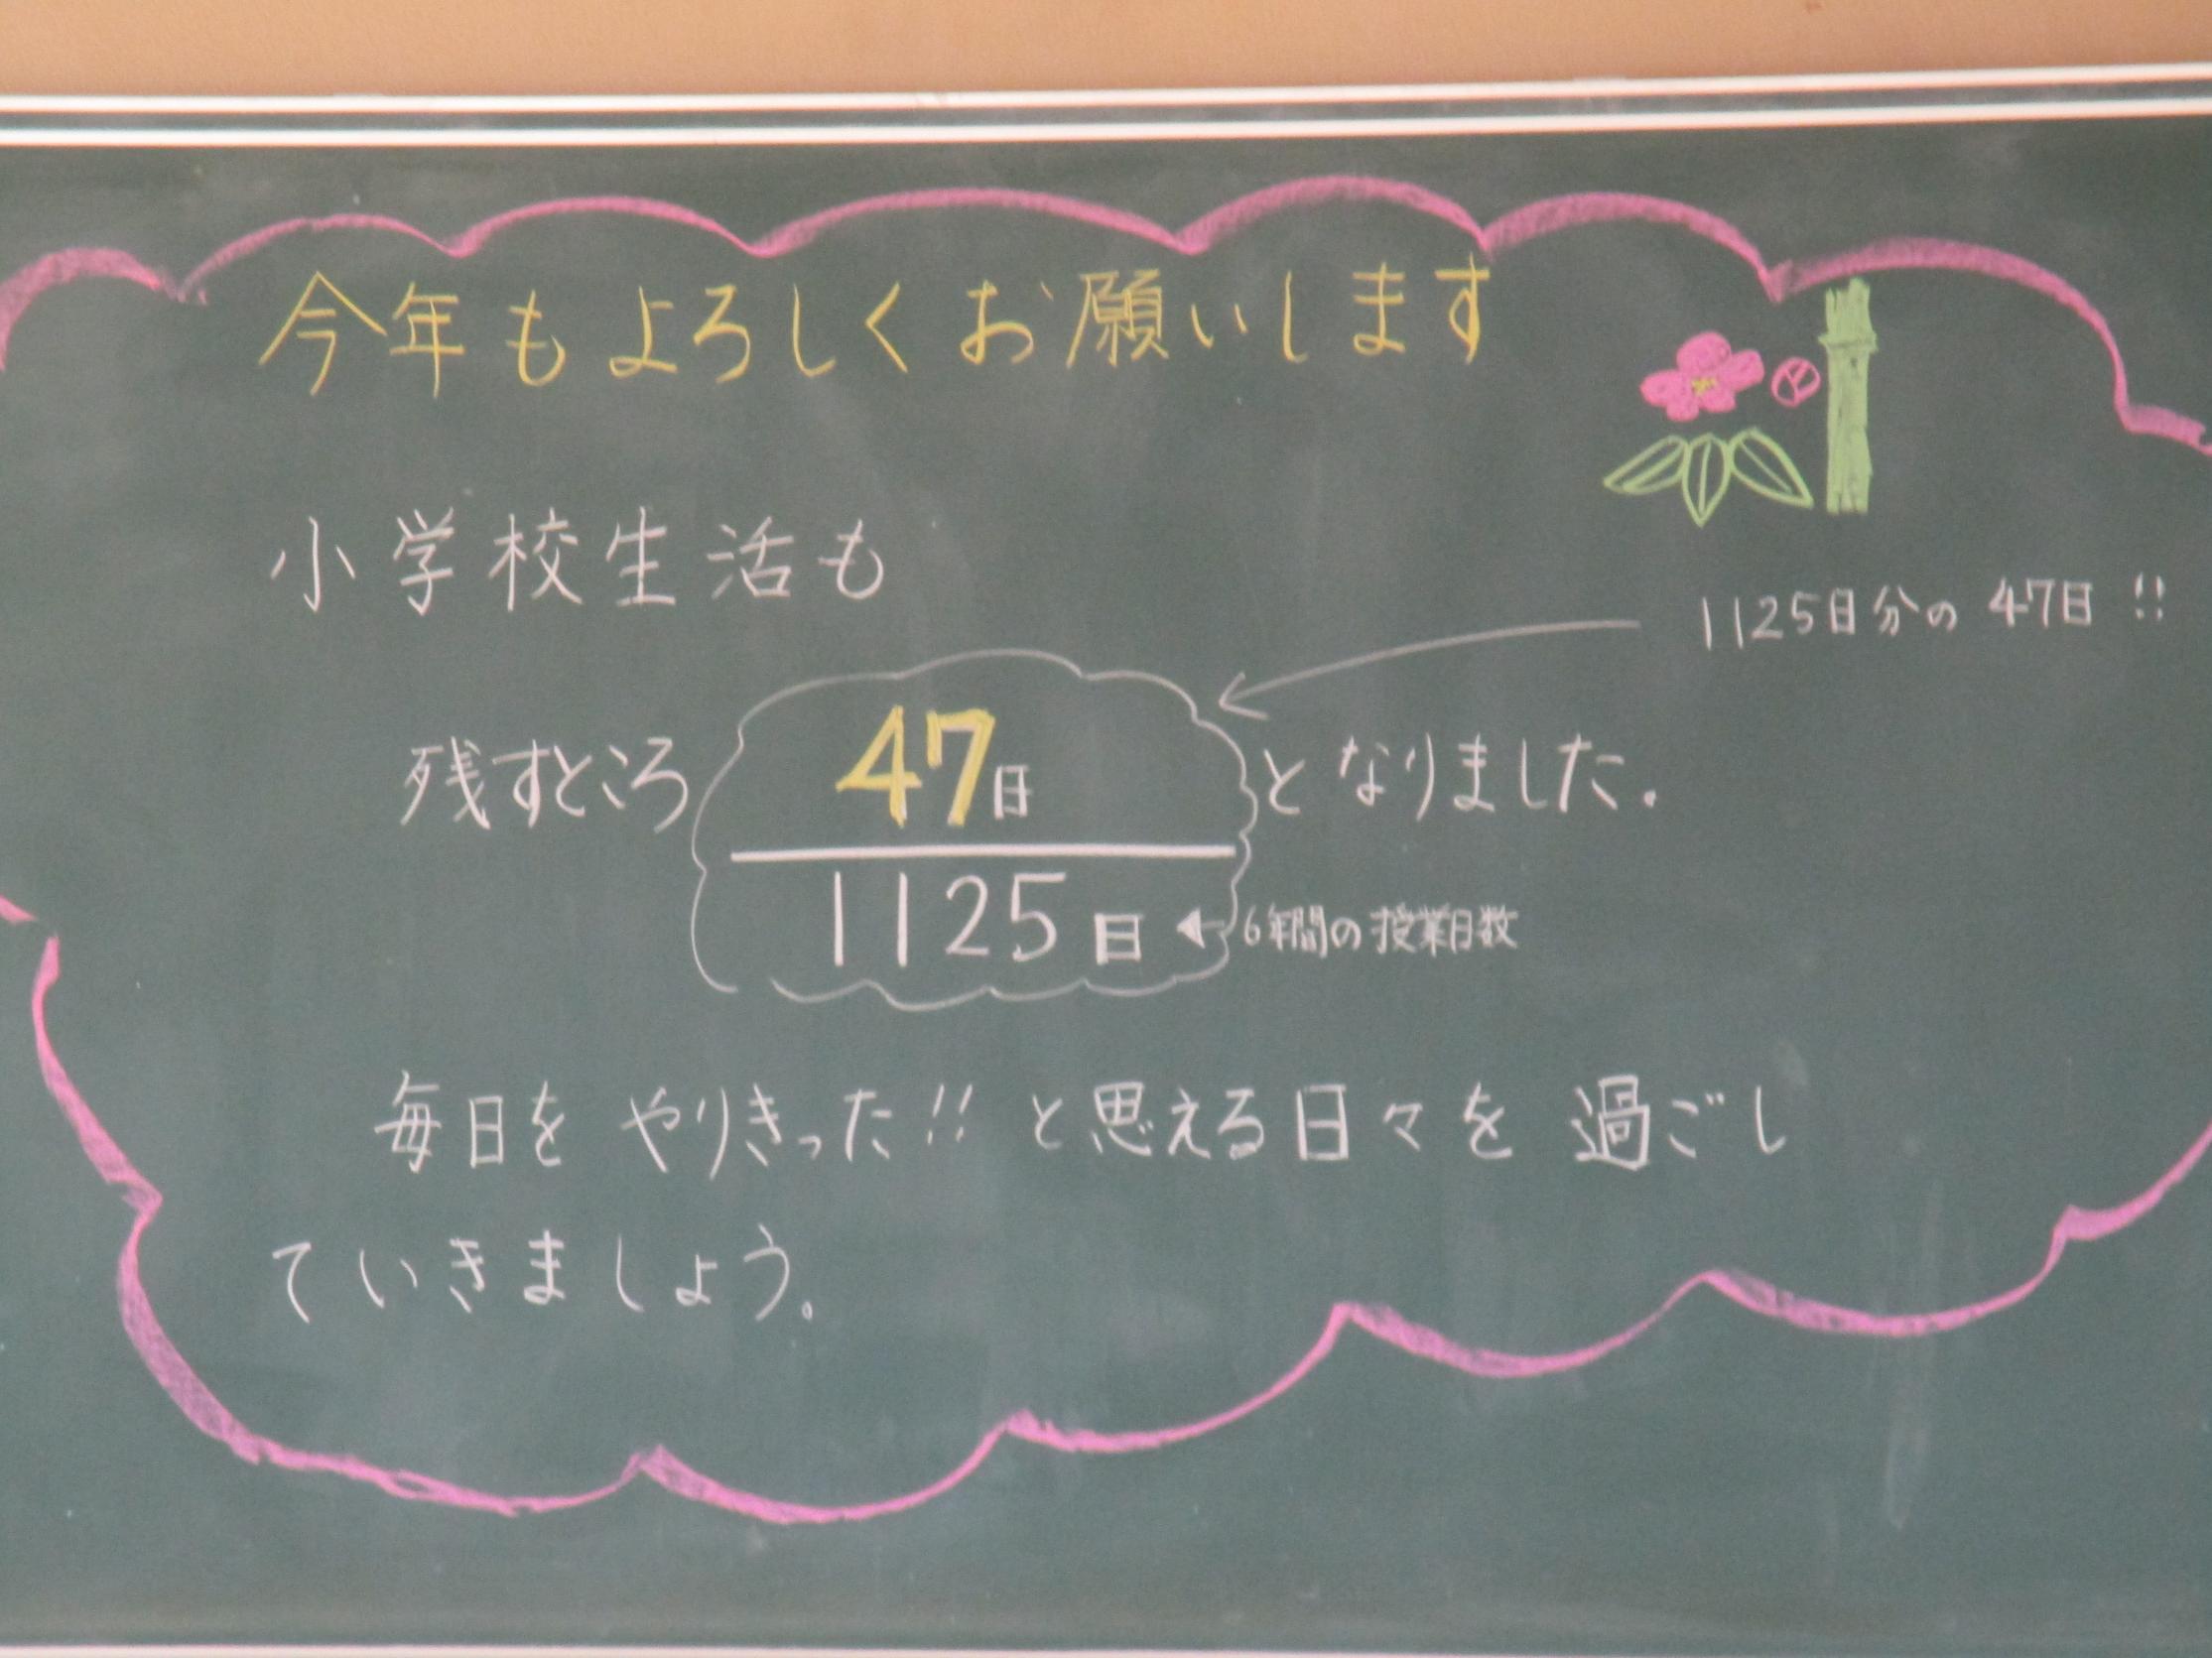 今年もよろしくお願いします
小学校生活も
1125日分の 47日!!
残すところ 47日 となりました.
1125日 ← 6年間の授業日数
毎日を やりきった!! と思える日々を 過ごし
ていきましょう。